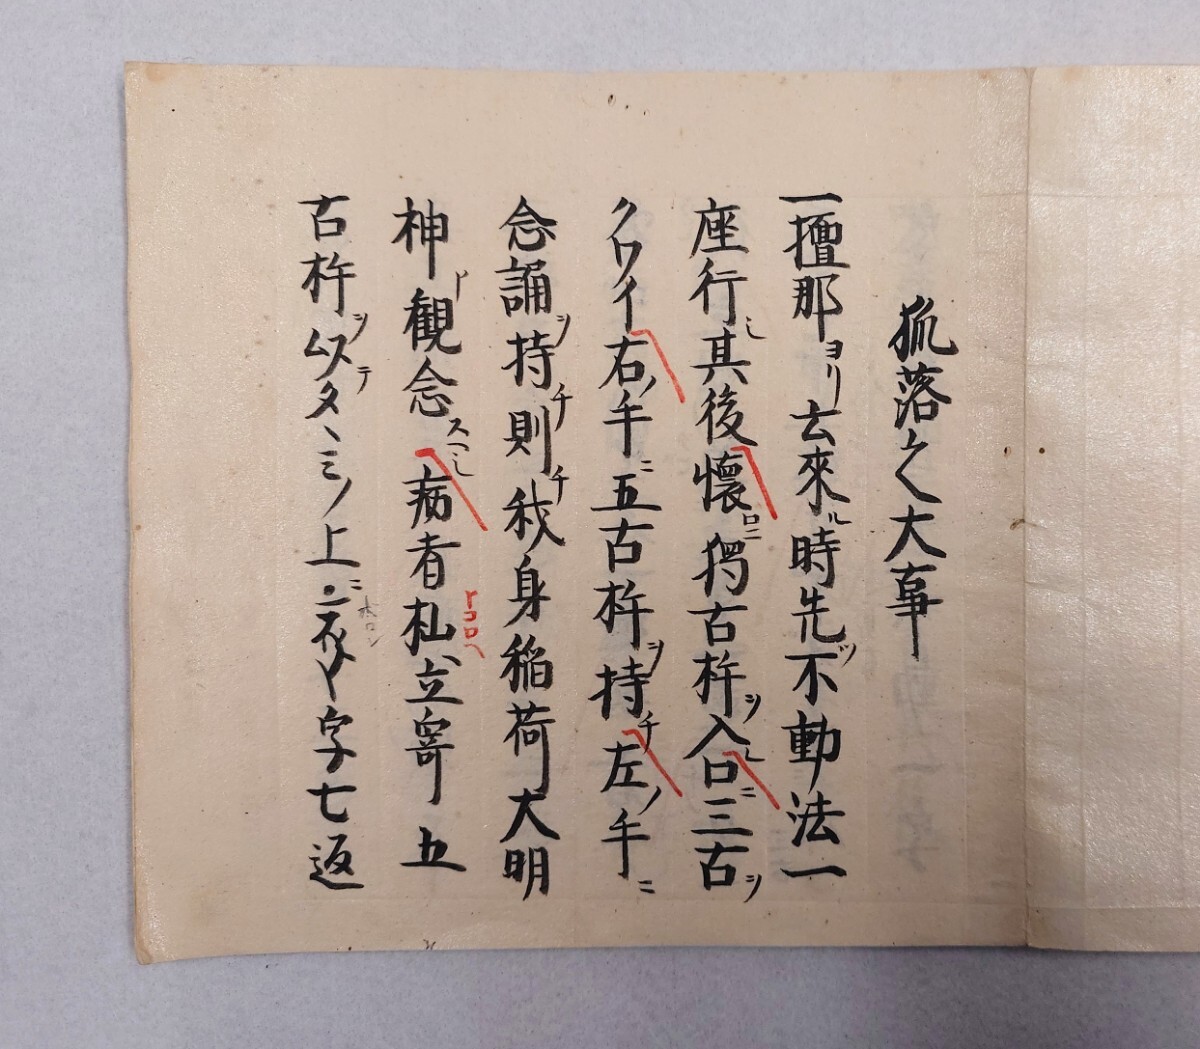 狐落之大事
一擅那ヨリ去來ル時先ツ不動法一
座行シ其後懐ロニ獨古杵ヲ入レ口ニ三古ヲ
クワイ右ノ手ニ五古杵ヲ持チ左ノ手ニ
念誦ヲ持チ則チ我身稲荷大明
神ト観念スヘシ病者トコロヘ立寄五
古杵ヲ以テタヽミノ上ニ ホロン字七返